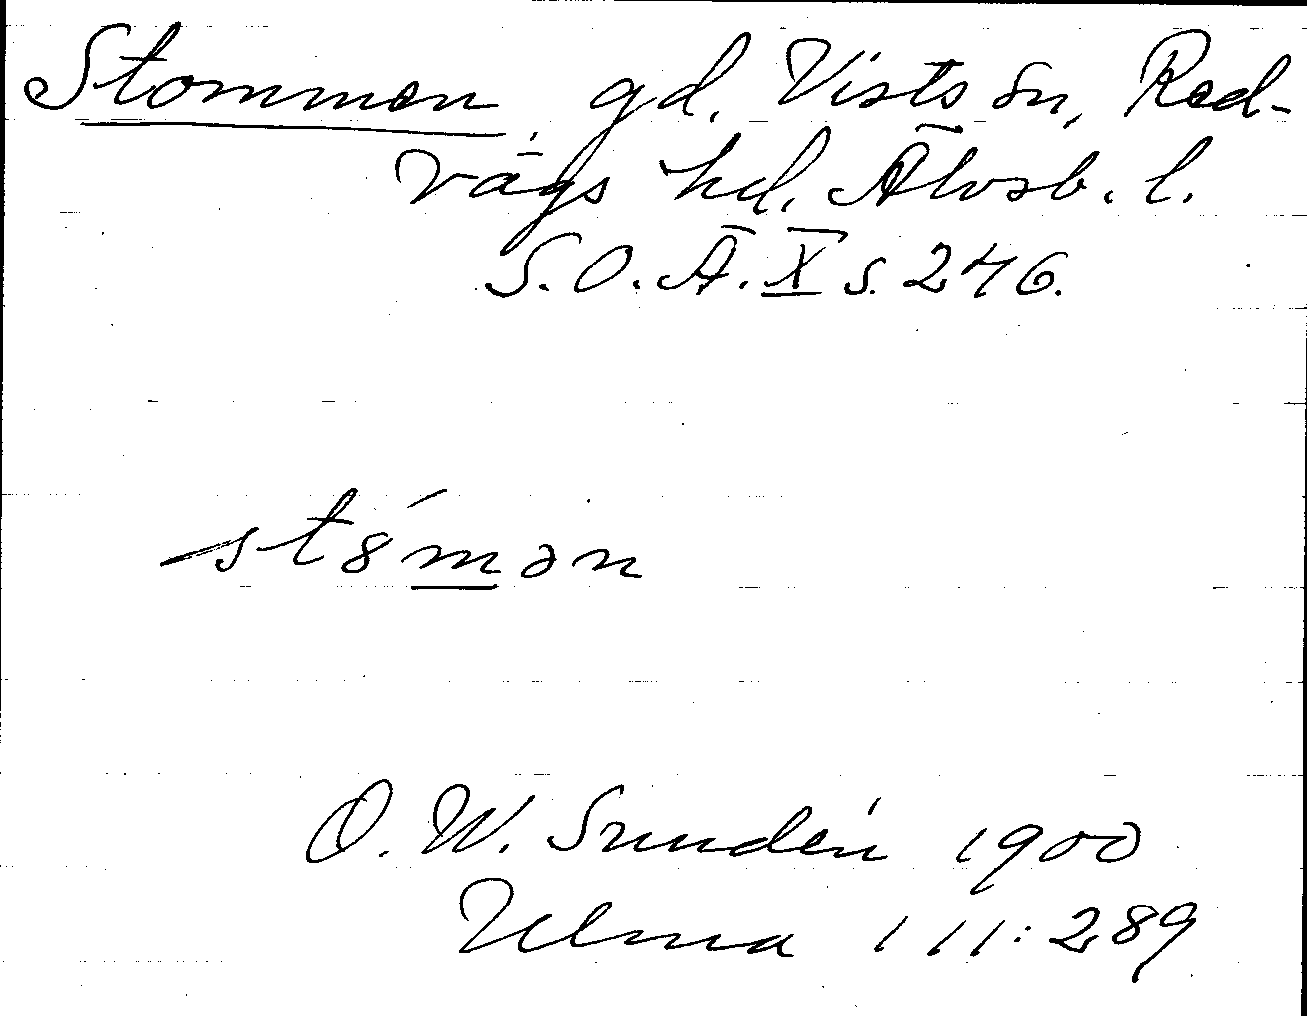 Stommen, gd. Vists sn, Red-
vägs hd, Älvsb. l.
S.O.Ä. X s. 246.
st8́mən
O. W. Sundén 1900
Ulma 111:289